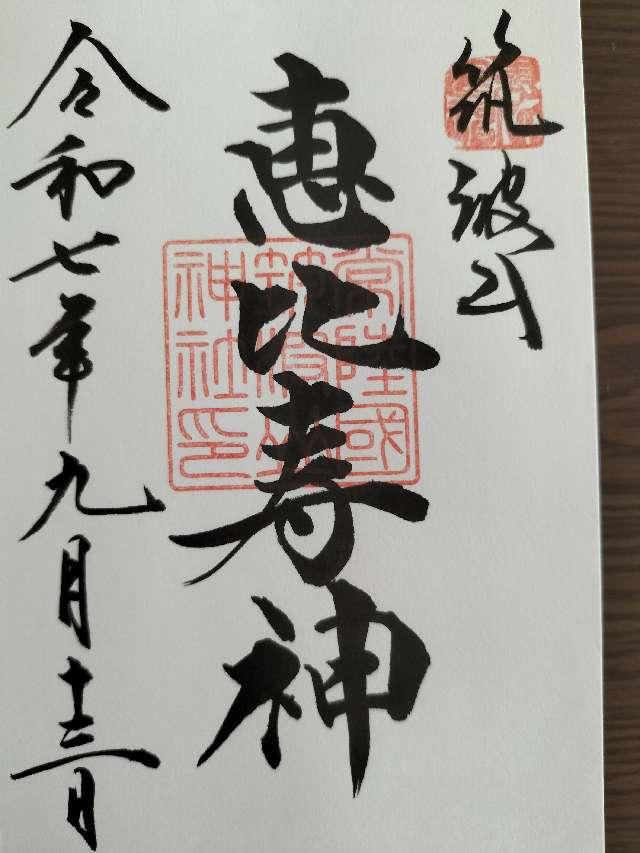 筑波山
恵比寿神
常陸國
筑波山
神社印
令和七年九月十三日